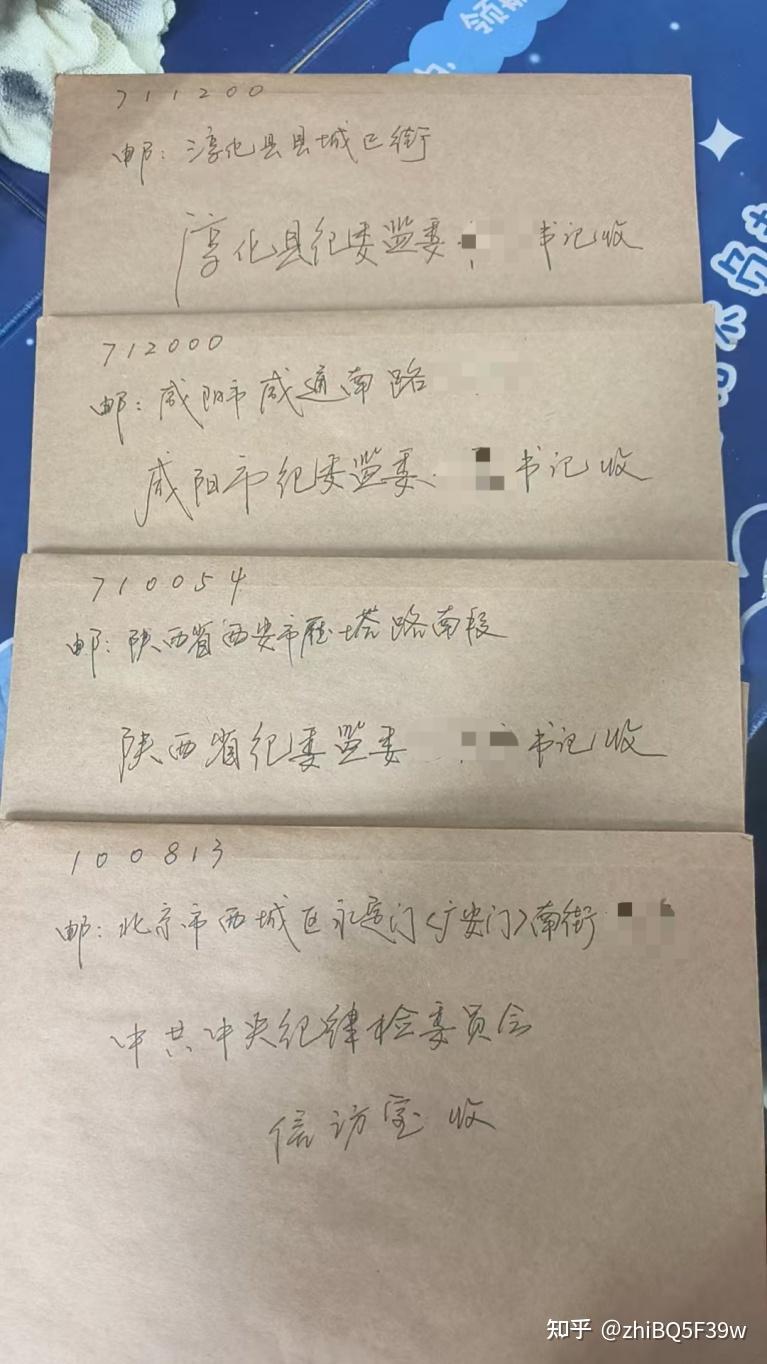 711200
邮: 淳化县县城正街
淳化县纪委监委 书记收
712000
邮: 咸阳市咸通南路
咸阳市纪委监委 书记收
710054
邮: 陕西省西安市雁塔路南段
陕西省纪委监委 书记收
100813
邮: 北京市西城区永定门<广安门>南街
中共中央纪律检委员会
信访室 收
知乎 @zhiBQ5F39w